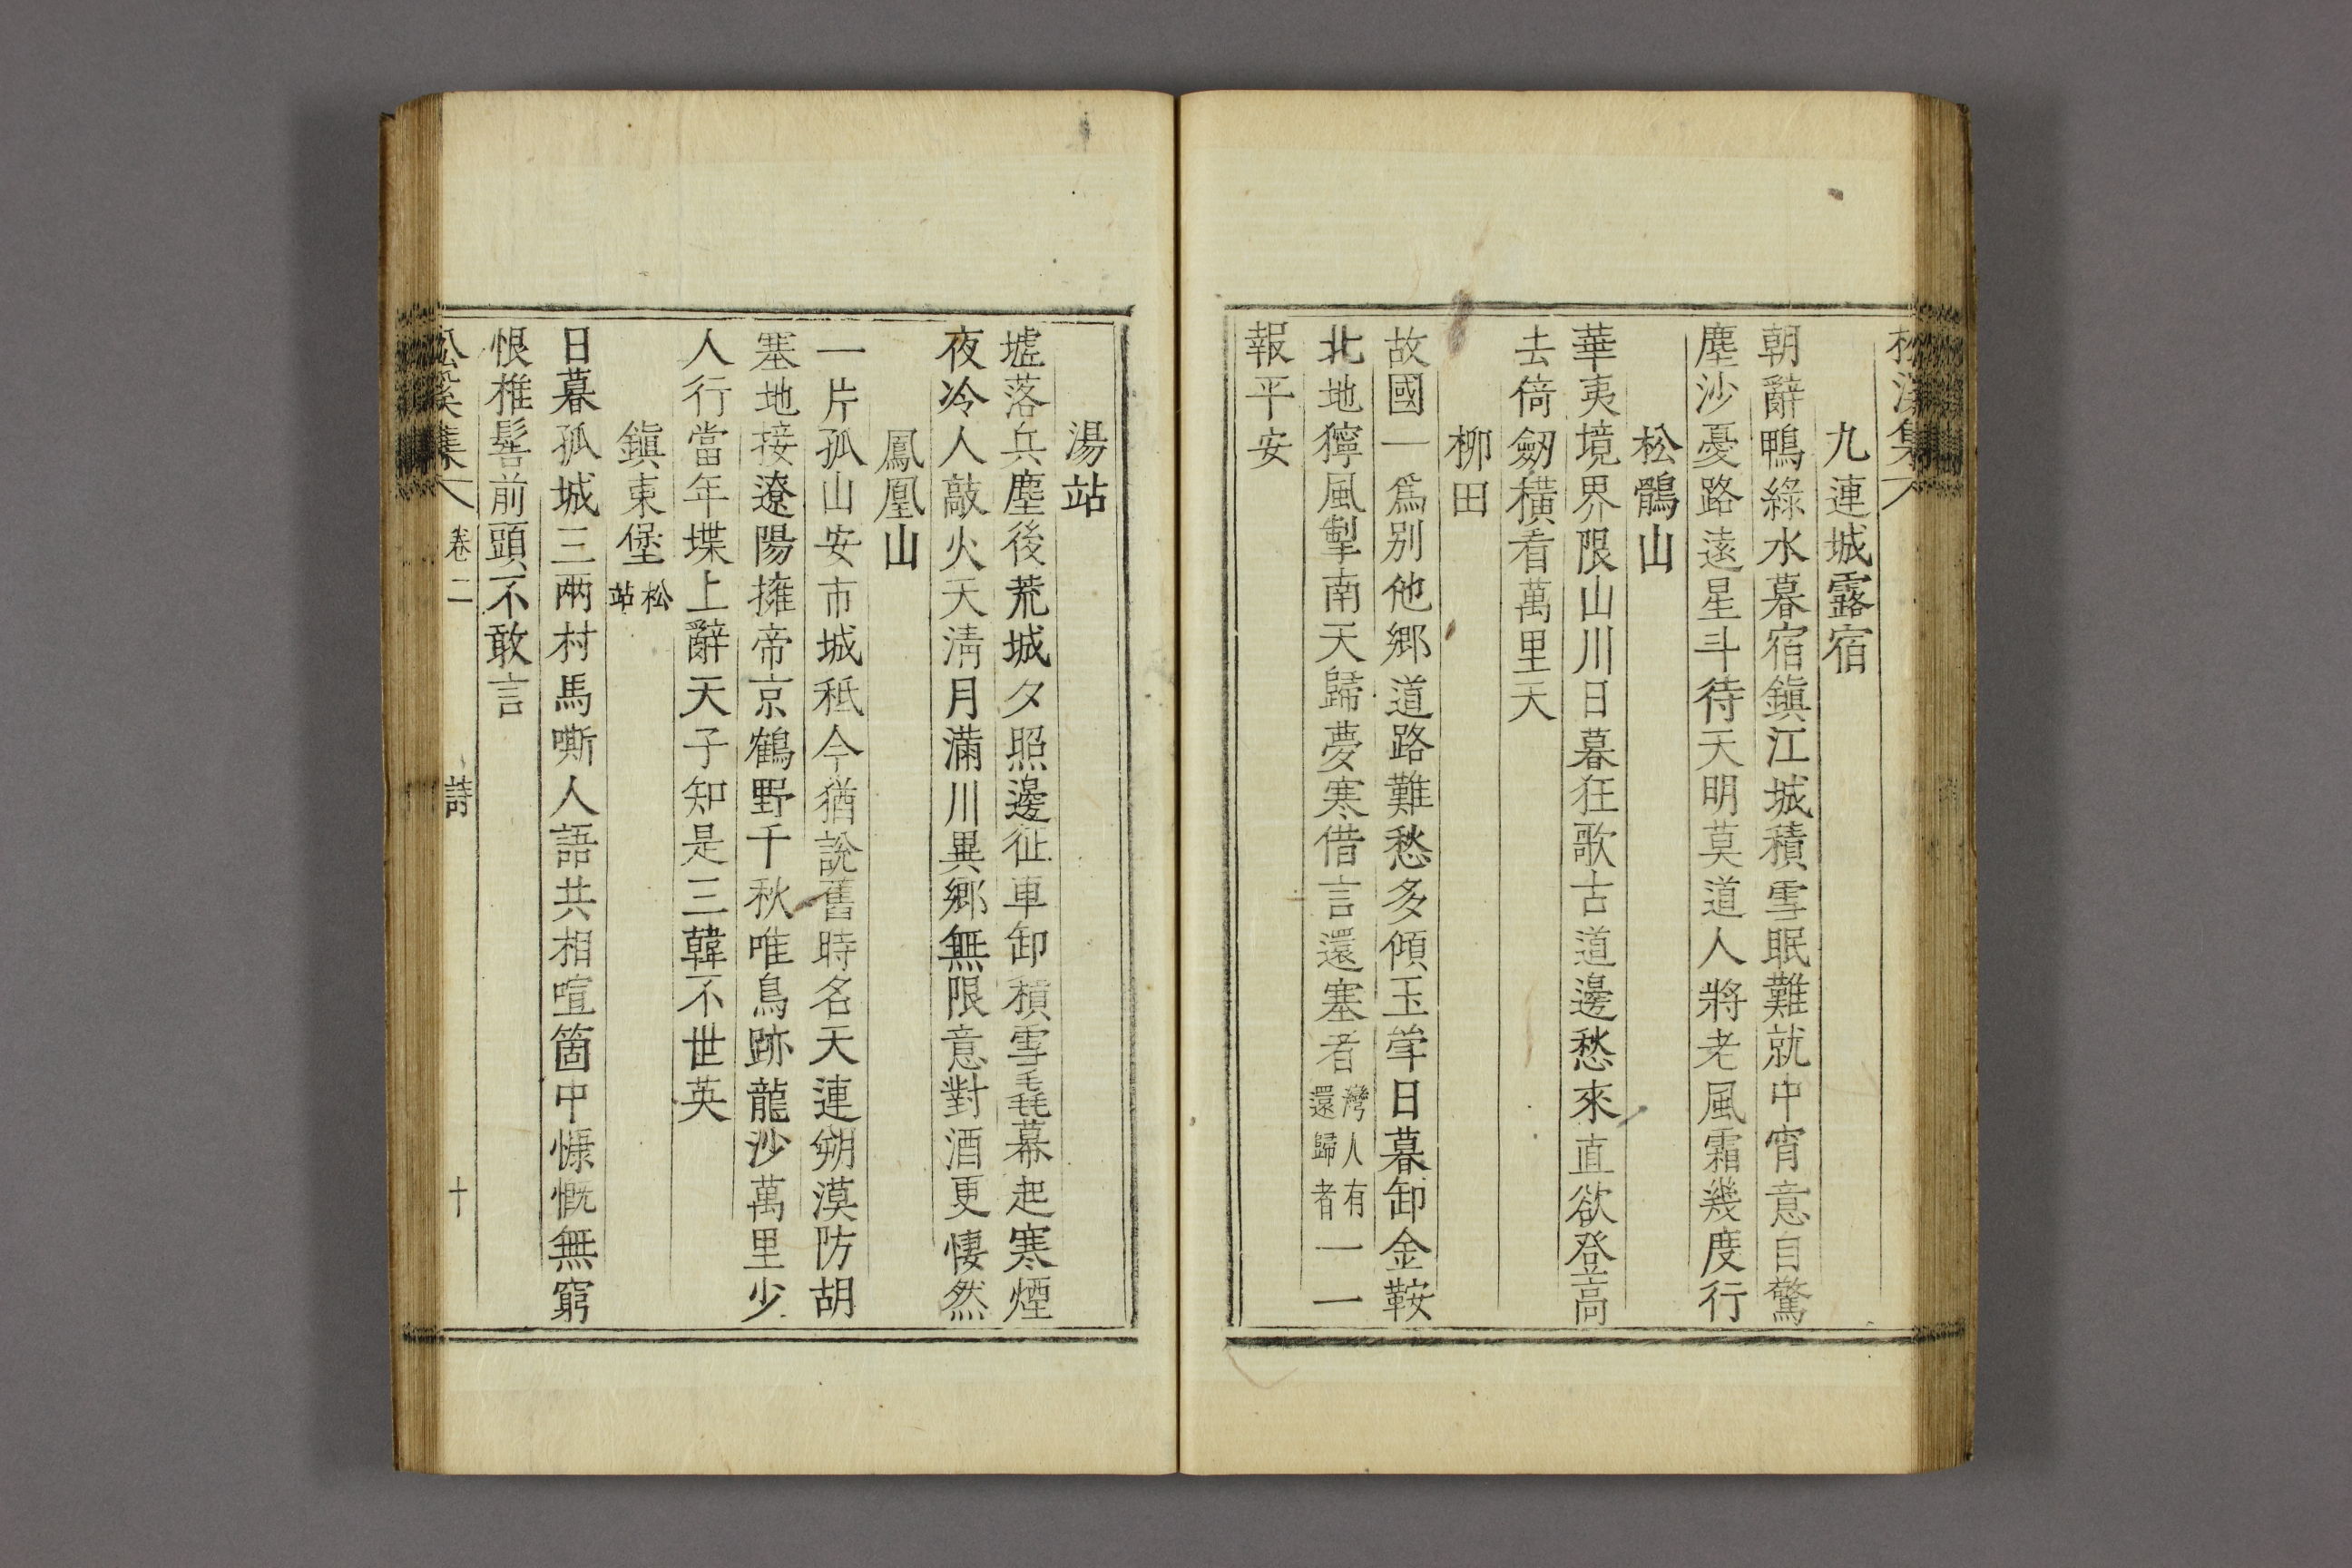 松溪集
九連城露宿
朝辭鴨綠水暮宿鎭江城積雪眠難就中宵意自驚
塵沙憂路遠星斗待天明莫道人將老風霜幾度行
松鶻山
華夷境界限山川日暮狂歌古道邊愁來直欲登高
去倚劒橫看萬里天
柳田
故國一爲別他鄕道路難愁多傾玉斝日暮卸金鞍
北地獰風掣南天歸夢寒借言還塞者灣人有還歸者一一
報平安
湯站
墟落兵塵後荒城夕照邊征車卸積雪毳幕起寒煙
夜冷人敲火天淸月滿川異鄕無限意對酒更悽然
鳳凰山
一片孤山安市城秪今猶說舊時名天連朔漠防胡
塞地接遼陽擁帝京鶴野千秋唯鳥跡龍沙萬里少
人行當年堞上辭天子知是三韓不世英
鎭東堡松站
日暮孤城三兩村馬嘶人語共相喧箇中慷慨無窮
恨椎髻前頭不敢言
松溪集 卷二 詩 十